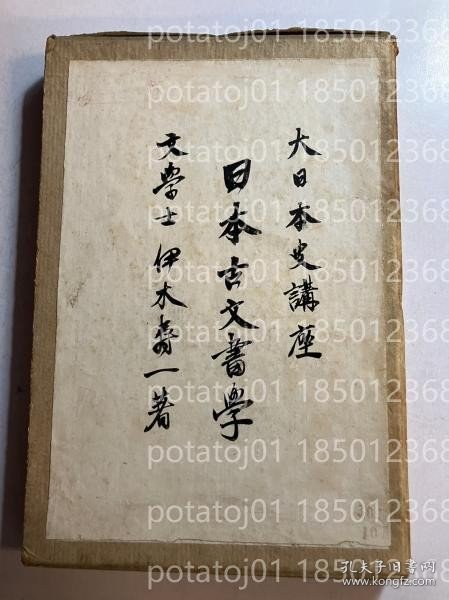 大日本史講座
日本古文書學
文學士 伊木壽一著
potatoj01 185012368
potatoj01 185012368
potatoj01 185012368
potatoj01 185012368
potatoj01 185012368
potatoj01 185012368
potatoj01 185012368
potatoj01 185012368
potatoj01 185012368
potatoj01 185012368
孔夫子旧书网
www.kongfz.com